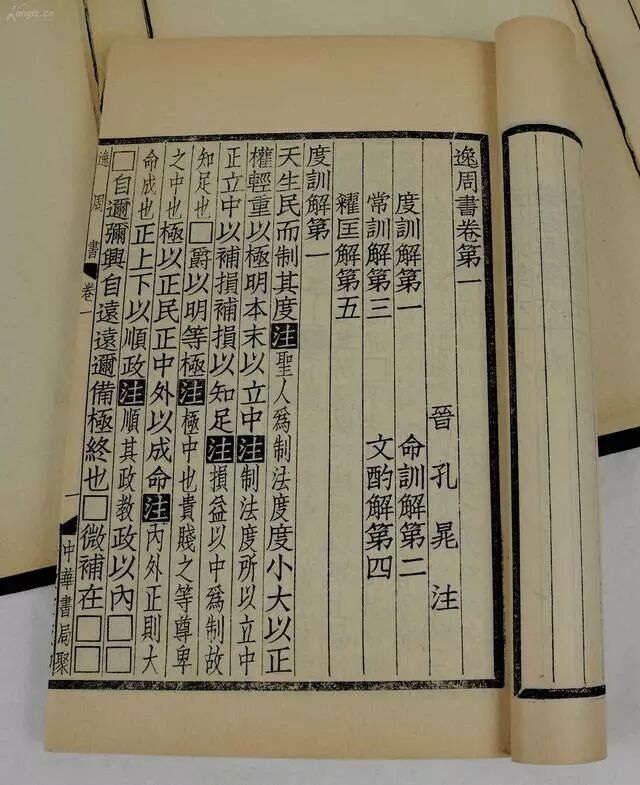 逸周書卷第一
晉孔晁注
度訓解第一 命訓解第二
常訓解第三 文酌解第四
糴匡解第五
度訓解第一
天生民而制其度注聖人爲制法度度小大以正
權輕重以極明本末以立中注制法度所以立中
正立中以補損補損以知足注損益以中爲制故
知足也□爵以明等極注極中也貴賤之等尊卑
之中也極以正民正中外以成命注內外正則大
命成也正上下以順政注順其政教政以內□□
□自邇彌興自遠遠邇備極終也□微補在□□
逸周書 卷一 一 中華書局聚